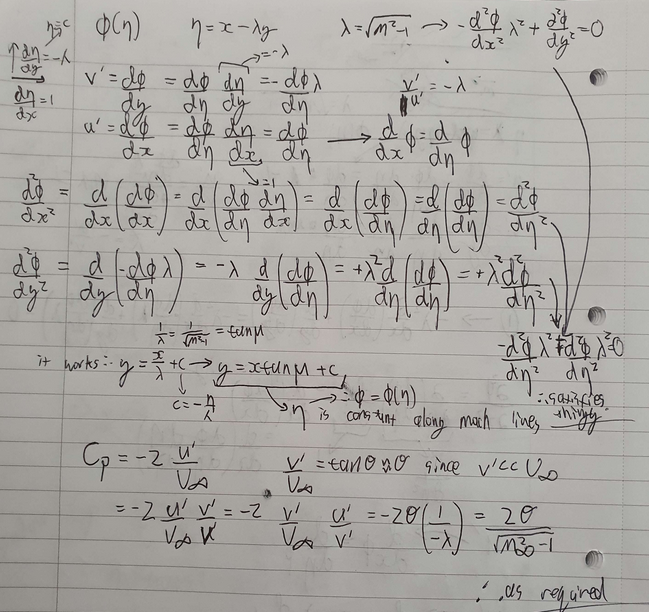 η=c φ(η) η = x − λy λ = √(M²−1) → −d²φ/dx² λ² + d²φ/dy² = 0
↑ dη/dy = −λ
dη/dx = 1
v' = dφ/dy = dφ/dη dη/dy = −dφ/dη λ v'/u' = −λ
→ = −λ
u' = dφ/dx = dφ/dη dη/dx = dφ/dη → d/dx φ = d/dη φ
→ = 1
d²φ/dx² = d/dx (dφ/dx) = d/dx (dφ/dη dη/dx) = d/dx (dφ/dη) = d/dη (dφ/dη) = d²φ/dη²
d²φ/dy² = d/dy (−dφ/dη λ) = −λ d/dy (dφ/dη) = +λ² d/dη (dφ/dη) = +λ² d²φ/dη²
1/λ = 1/√(M²−1) = tanμ
−d²φ/dη² λ² + d²φ/dη² λ² = 0
it works ∴ y = x/λ + c → y = xtanμ + c,
∴ satisfies thingy
c = −η/λ
η → ∴ φ = φ(η)
is constant along mach lines
Cp = −2 u'/V∞ v'/V∞ = tanθ ≈ θ since v' << U∞
= −2 u'/V∞ v'/v' = −2 v'/V∞ u'/v' = −2θ (1/−λ) = 2θ/√(M²∞−1)
∴ as required